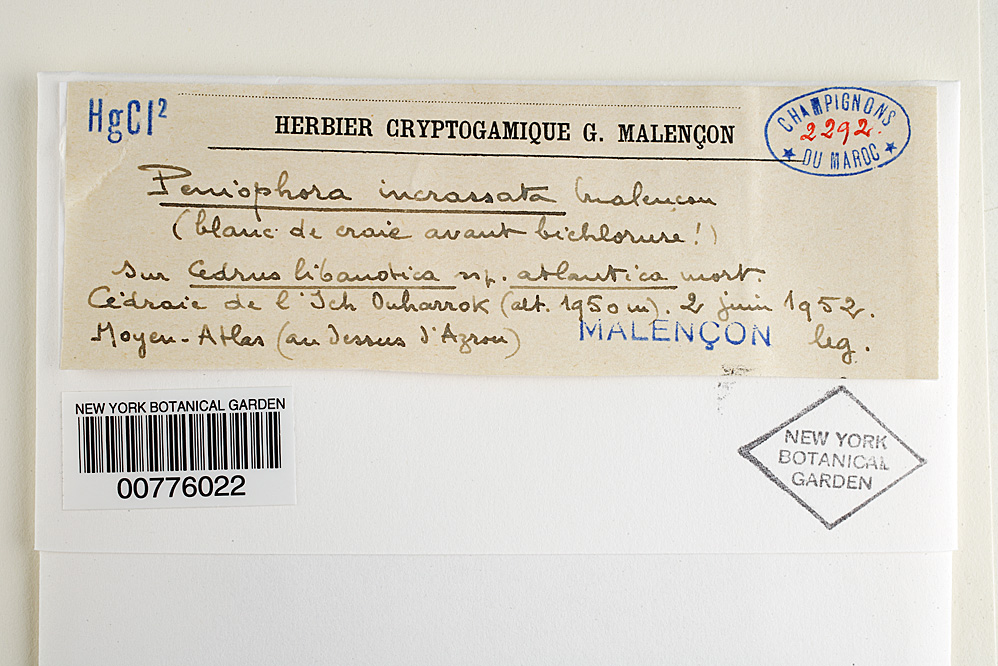 HgCl²
HERBIER CRYPTOGAMIQUE G. MALENÇON
CHAMPIGNONS
2292.
DU MAROC
Peniophora incrassata Malençon
(blanc de craie avant bichlorure!)
sur Cedrus libanotica ssp. atlantica mort.
Cédraie de l'Ich Ouharrok (alt. 1950 m). 2 juin 1952.
Moyen-Atlas (au dessus d'Azrou)
MALENÇON leg.
NEW YORK BOTANICAL GARDEN
00776022
NEW YORK
BOTANICAL
GARDEN